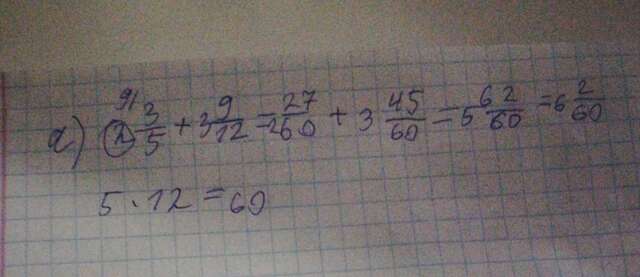 a) 2 3/5 + 3 9/12 = 2 27/60 + 3 45/60 = 5 62/60 = 6 2/60
5 · 12 = 60